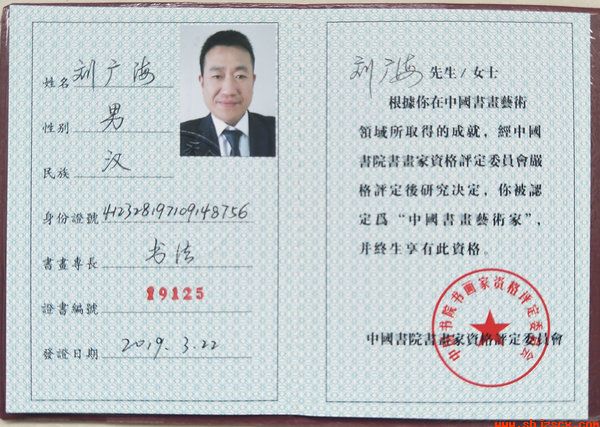 姓名 刘广海
性别 男
民族 汉
身份證號 412328197109148756
書畫專長 书法
證書編號 19125
發證日期 2019.3.22
刘广海 先生/女士
根據你在中國書畫藝術
領域所取得的成就，經中國
書院書畫家資格評定委員會嚴
格評定後研究決定，你被認
定爲“中國書畫藝術家”，
并終生享有此資格。
中國書院書畫家資格評定委員會
中国书院书画家资格评定委员会
www.shjzscx.com